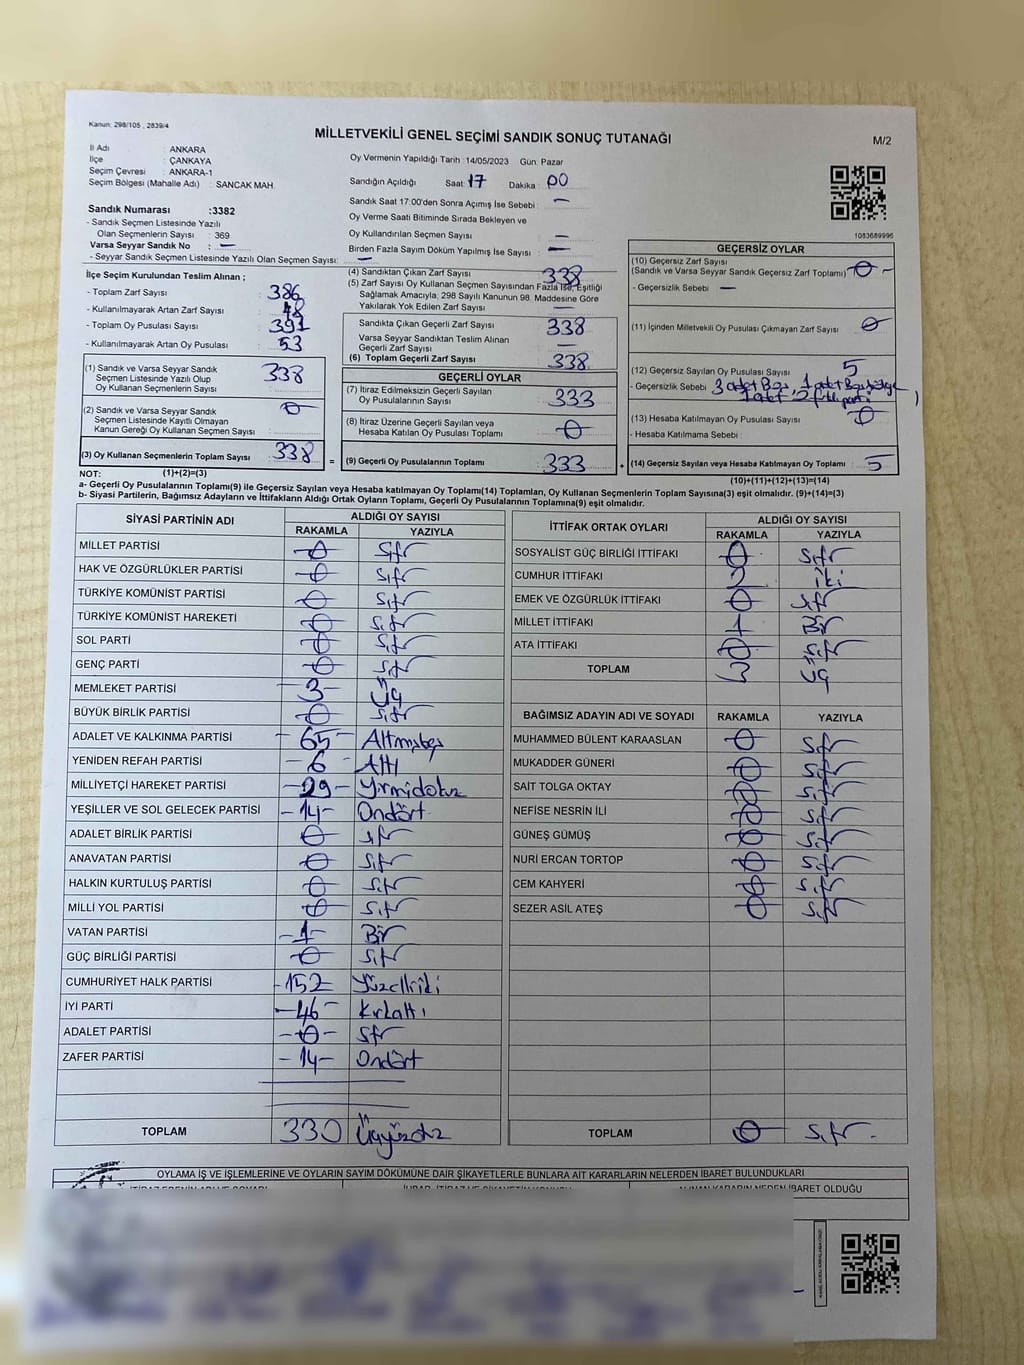 Kanun: 298/105 , 2839/4
MİLLETVEKİLİ GENEL SEÇİMİ SANDIK SONUÇ TUTANAĞI
M/2
İl Adı : ANKARA
İlçe : ÇANKAYA
Seçim Çevresi : ANKARA-1
Seçim Bölgesi (Mahalle Adı) : SANCAK MAH.
Sandık Numarası :3382
- Sandık Seçmen Listesinde Yazılı
Olan Seçmenlerin Sayısı : 369
Varsa Seyyar Sandık No : —
- Seyyar Sandık Seçmen Listesinde Yazılı Olan Seçmen Sayısı: —
Oy Vermenin Yapıldığı Tarih :14/05/2023 Gün: Pazar
Sandığın Açıldığı Saat: 17 Dakika : 00
Sandık Saat 17:00'den Sonra Açımış İse Sebebi : —
Oy Verme Saati Bitiminde Sırada Bekleyen ve
Oy Kullandırılan Seçmen Sayısı : —
Birden Fazla Sayım Döküm Yapılmış İse Sayısı : —
1083689996
İlçe Seçim Kurulundan Teslim Alınan ;
- Toplam Zarf Sayısı : 386
- Kullanılmayarak Artan Zarf Sayısı : 48
- Toplam Oy Pusulası Sayısı : 391
- Kullanılmayarak Artan Oy Pusulası : 53
(1) Sandık ve Varsa Seyyar Sandık
Seçmen Listesinde Yazılı Olup
Oy Kullanan Seçmenlerin Sayısı : 338
(2) Sandık ve Varsa Seyyar Sandık
Seçmen Listesinde Kayıtlı Olmayan
Kanun Gereği Oy Kullanan Seçmen Sayısı : 0
(3) Oy Kullanan Seçmenlerin Toplam Sayısı : 338
(1)+(2)=(3)
(4) Sandıktan Çıkan Zarf Sayısı 338
(5) Zarf Sayısı Oy Kullanan Seçmen Sayısından Fazla İse, Eşitliği
Sağlamak Amacıyla, 298 Sayılı Kanunun 98. Maddesine Göre
Yakılarak Yok Edilen Zarf Sayısı : —
Sandıkta Çıkan Geçerli Zarf Sayısı 338
Varsa Seyyar Sandıktan Teslim Alınan
Geçerli Zarf Sayısı : —
(6) Toplam Geçerli Zarf Sayısı : 338
GEÇERLİ OYLAR
(7) İtiraz Edilmeksizin Geçerli Sayılan
Oy Pusulalarının Sayısı : 333
(8) İtiraz Üzerine Geçerli Sayılan veya
Hesaba Katılan Oy Pusulası Toplamı : 0
= (9) Geçerli Oy Pusulalarının Toplamı : 333
GEÇERSİZ OYLAR
(10) Geçersiz Zarf Sayısı
(Sandık ve Varsa Seyyar Sandık Geçersiz Zarf Toplamı) : 0
- Geçersizlik Sebebi : —
(11) İçinden Milletvekili Oy Pusulası Çıkmayan Zarf Sayısı : 0
(12) Geçersiz Sayılan Oy Pusulası Sayısı : 5
- Geçersizlik Sebebi : 3 adet Boş, 1 adet
1 adet 2 parti
(13) Hesaba Katılmayan Oy Pusulası Sayısı : 0
- Hesaba Katılmama Sebebi :
+ (14) Geçersiz Sayılan veya Hesaba Katılmayan Oy Toplamı : 5
(10)+(11)+(12)+(13)=(14)
NOT:
a- Geçerli Oy Pusulalarının Toplamı(9) ile Geçersiz Sayılan veya Hesaba katılmayan Oy Toplamı(14) Toplamları, Oy Kullanan Seçmenlerin Toplam Sayısına(3) eşit olmalıdır. (9)+(14)=(3)
b- Siyasi Partilerin, Bağımsız Adayların ve İttifakların Aldığı Ortak Oyların Toplamı, Geçerli Oy Pusulalarının Toplamına(9) eşit olmalıdır.
SİYASİ PARTİNİN ADI ALDIĞI OY SAYISI
RAKAMLA YAZIYLA
MİLLET PARTİSİ 0 Sıfır
HAK VE ÖZGÜRLÜKLER PARTİSİ 0 Sıfır
TÜRKİYE KOMÜNİST PARTİSİ 0 Sıfır
TÜRKİYE KOMÜNİST HAREKETİ 0 Sıfır
SOL PARTİ 0 Sıfır
GENÇ PARTİ 0 Sıfır
MEMLEKET PARTİSİ -3- Üç
BÜYÜK BİRLİK PARTİSİ 0 Sıfır
ADALET VE KALKINMA PARTİSİ -65- Altmışbeş
YENİDEN REFAH PARTİSİ -6- Altı
MİLLİYETÇİ HAREKET PARTİSİ -29- Yirmidokuz
YEŞİLLER VE SOL GELECEK PARTİSİ -14- Ondört
ADALET BİRLİK PARTİSİ 0 Sıfır
ANAVATAN PARTİSİ 0 Sıfır
HALKIN KURTULUŞ PARTİSİ 0 Sıfır
MİLLİ YOL PARTİSİ 0 Sıfır
VATAN PARTİSİ -1- Bir
GÜÇ BİRLİĞİ PARTİSİ 0 Sıfır
CUMHURİYET HALK PARTİSİ -152 Yüzelliiki
İYİ PARTİ -46- Kırkaltı
ADALET PARTİSİ -0- Sıfır
ZAFER PARTİSİ -14- Ondört
TOPLAM 330 Üçyüzotuz
İTTİFAK ORTAK OYLARI ALDIĞI OY SAYISI
RAKAMLA YAZIYLA
SOSYALİST GÜÇ BİRLİĞİ İTTİFAKI 0 Sıfır
CUMHUR İTTİFAKI 2 İki
EMEK VE ÖZGÜRLÜK İTTİFAKI 0 Sıfır
MİLLET İTTİFAKI 1 Bir
ATA İTTİFAKI 0 Sıfır
TOPLAM 3 Üç
BAĞIMSIZ ADAYIN ADI VE SOYADI RAKAMLA YAZIYLA
MUHAMMED BÜLENT KARAASLAN 0 Sıfır
MUKADDER GÜNERİ 0 Sıfır
SAİT TOLGA OKTAY 0 Sıfır
NEFİSE NESRİN İLİ 0 Sıfır
GÜNEŞ GÜMÜŞ 0 Sıfır
NURİ ERCAN TORTOP 0 Sıfır
CEM KAHYERİ 0 Sıfır
SEZER ASİL ATEŞ 0 Sıfır
TOPLAM 0 Sıfır.
OYLAMA İŞ VE İŞLEMLERİNE VE OYLARIN SAYIM DÖKÜMÜNE DAİR ŞİKAYETLERLE BUNLARA AİT KARARLARIN NELERDEN İBARET BULUNDUKLARI
ALINAN KARARIN NEDEN İBARET OLDUĞU